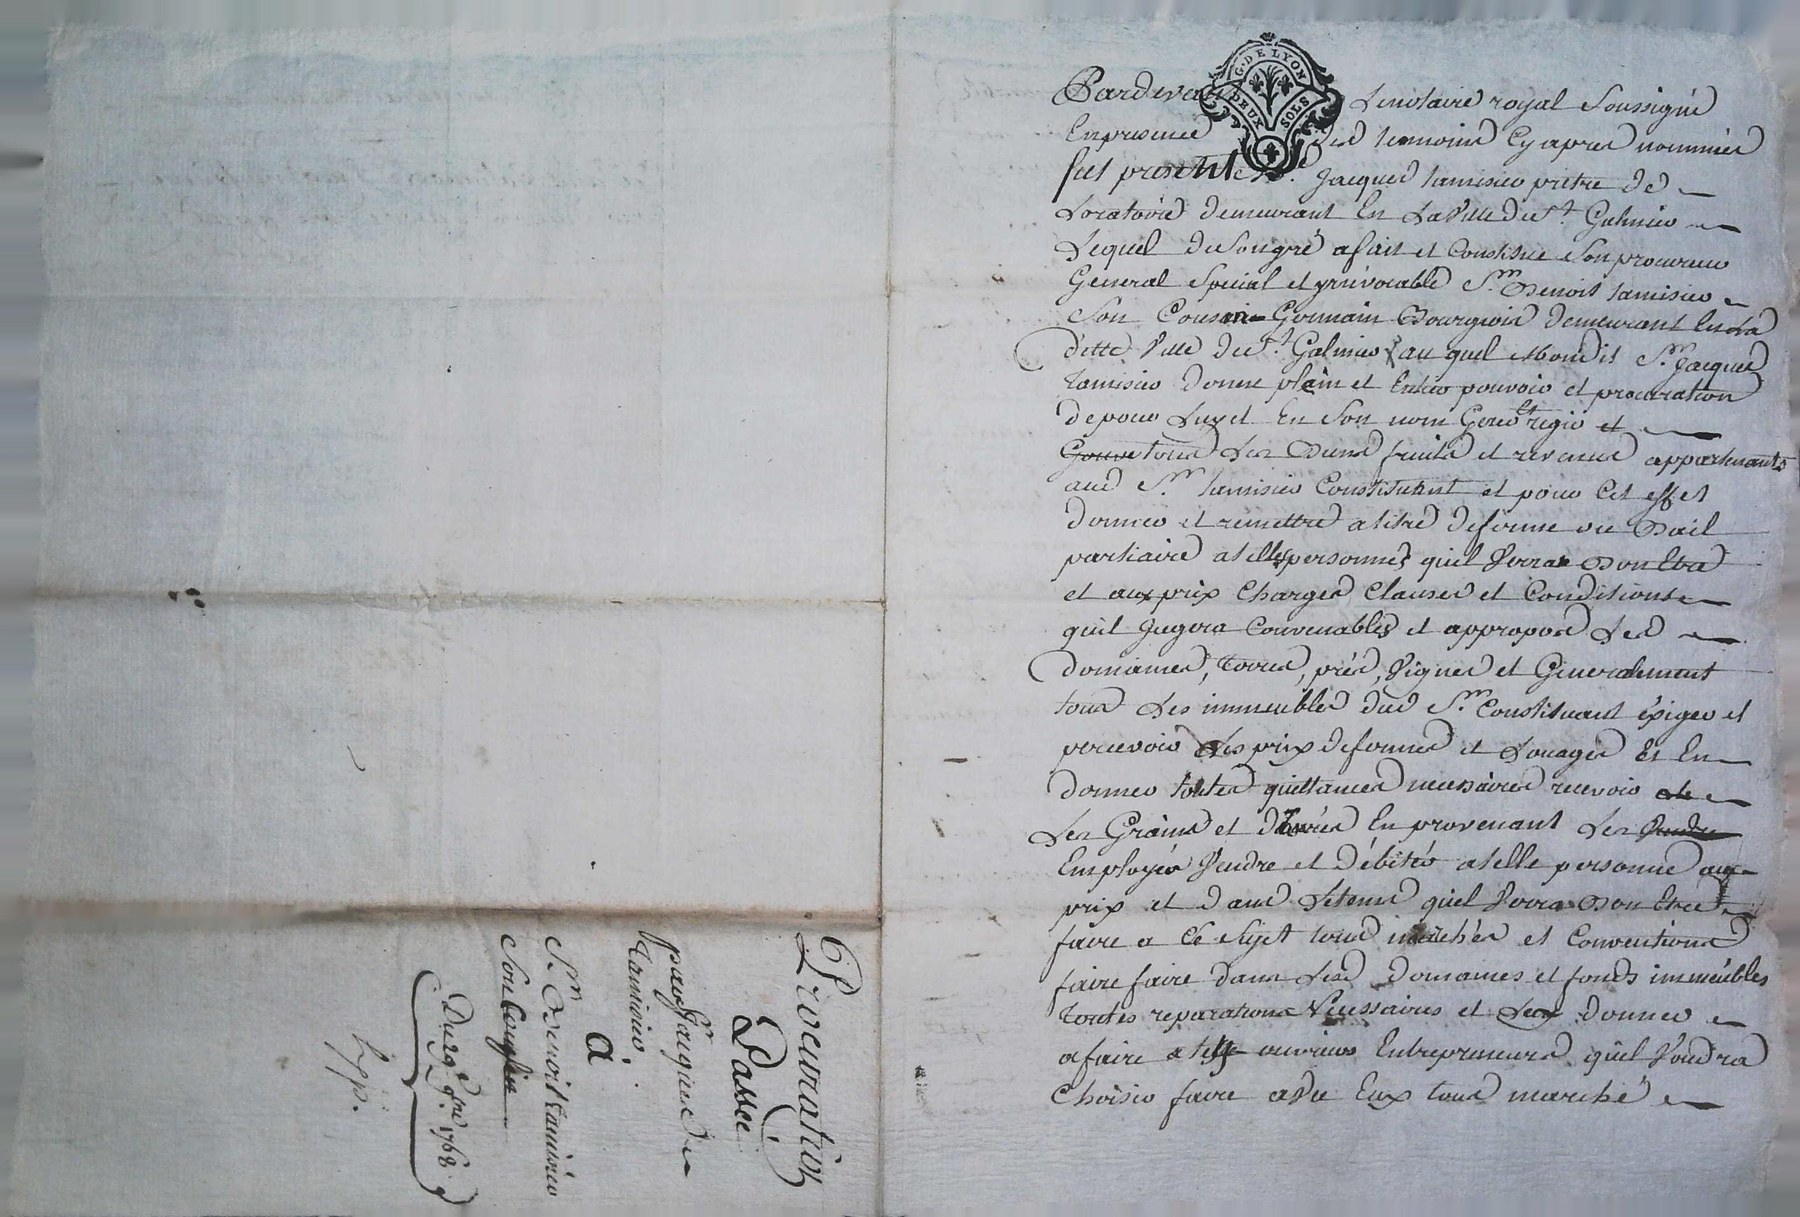 G. DE LYON
DEUX SOLS
Pardevant Le notaire royal Soussigné
En presence des temoins Cy apres nommés
fut present Me. Jacques tamisier prêtre de
Loratoire demeurant En La Ville de St. Galmier
Lequel de Son gré a fait et Constitué Son procureur
General Special et yrrevocable Sr. Benoit tamisier
Son Cousin Germain Bourgeois demeurant En La
ditte Ville de St. Galmier au quel Mondit Sr. Jacques
tamisier donne plain et Entier pouvoir et procuration
de pour Luy et En Son nom Gerer et regir et
Gouve tous Les Biens fruits et revenus appartenants
aud Sr. tamisier Constituant et pour Cet effet
donner et remettre a titre de ferme ou Bail
partiaire a telles personnes quil Verra Bon Etre
et aux prix Charges Clauses et Conditions
quil Jugera Convenables et appropos Les
domaines, terres, prés, Vignes et Generalement
tous Les immeubles dud Sr. Constituant éxiger et
percevoir Les prix de fermes et Louages Et En
donner toutes quittances necessaires recevoir
Les Grains et danrées En provenant Les Vendre
Employer Vendre et débiter a telle personne aux
prix et dans Le tems quil Verra Bon Etre
faire a Ce Sujet tous marchés et Conventions
faire faire dans Lesd domaines et fonds immeubles
toutes reparations Necessaires et Les donner
a faire a tels ouvriers Entrepreneurs quil Voudra
Choisir faire avec Eux tous marché
Procuration
Passée
par Sr. Jacques
tamisier
à
Sr. Benoit tamisier
Son Cousin
Du 29e. 9bre 1768